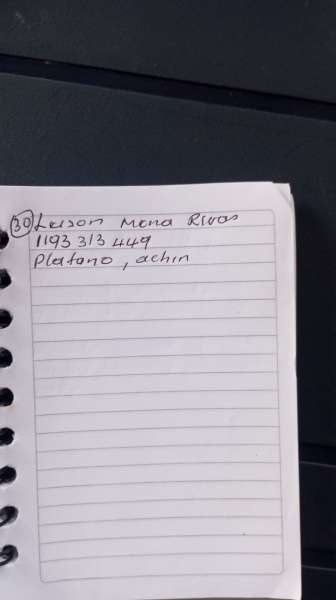 30 Luison Mena Rivas
1193 313 449
Platano, achin